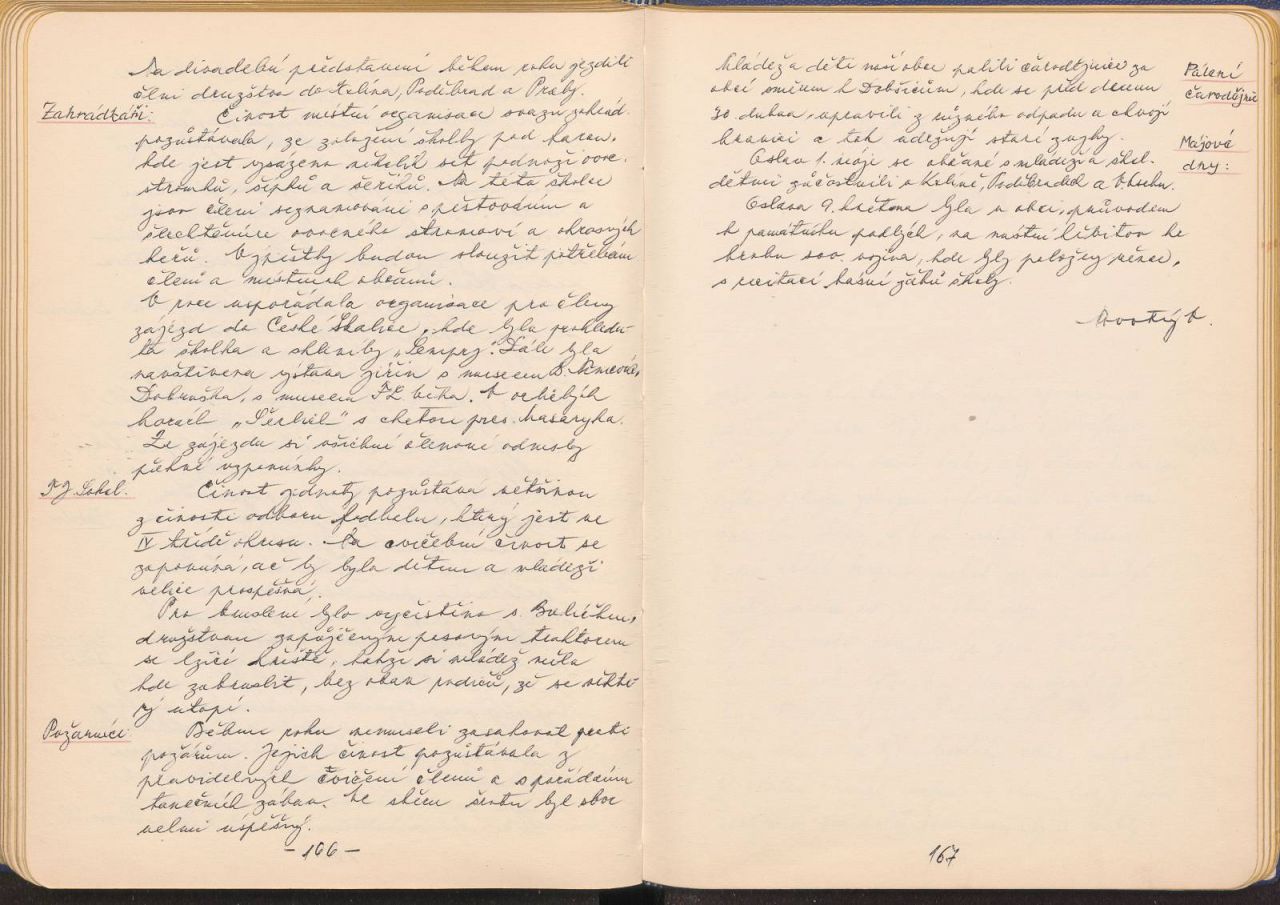 Na divadelní představení během roku jezdili
členi družstva do Kolína, Poděbrad a Prahy.
Zahrádkáři:
Činost místní organisace svazu zahrád.
pozůstávala, ze založení školky pod haran,
kde jest vysazeno několik set podnoží ovoc.
stromků, šípků a šeříků. Na této školce
jsou členi seznamováni s pěstováním a
šlechtěnice ovocného stromoví a okrasných
keřů. Výpěstky budou sloužit potřebám
členů a místních občanů.
V roce uspořádala organisace pro členy
zájezd do České Skalice, kde byla prohlednu-
ta školka a skleníky „Sempry". Dále byla
navštívena výstava jiřin s museem B. Němcové,
Dobruška, s museem FL Věka. V orlických
horách „Šerlich" s chatou pres. Masaryka.
Ze zájezdu si všichni členové odnesly
pěkné vzpomínky.
TJ Sokol:
Činost jednoty pozůstává většinou
z činosti odboru fodbalu, který jest ve
IV třídě okresu. Na cvičební činost se
zapomíná, ač by byla dětem a mládeži
velice prospěšná.
Pro bruslení bylo vyčistěno s.
družstvem zapůjčeným pasovým traktorem
se lžící hřiště, takže si mládež měla
kde zabruslit, bez obav rodičů, že se někte-
rý utopí.
Požárníci:
Během roku nemuseli zasahovat proti
požárům. Jejich činost pozůstávala z
pravidelných cvičení členů a s pořádáním
tanečních zábav. Ve sběru šrotu byl sbor
velmi úspěšný.
- 166 -
Mládež a děti naší obce pálili čarodějnice za
obcí směrem k Dobšicům, kde se před dnem
30 dubna, upravili z různého odpadu a chvojí
hranici a tak udržují staré zvyky.
Pálení
čarodějnic
Májové
dny:
Oslav 1. máje se občané s mládeží a škol.
dětmi zúčastnili v Kolíně, Poděbradech a V. Oseku.
Oslava 9. května byla v obci, průvodem
k památníku padlých, na místní hřbitov ke
hrobu sov. vojína, kde byly položeny věnce,
s recitací básní žáků školy.
167